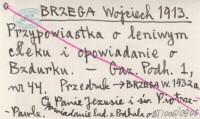 BRZEGA Wojciech 1913.
Przypowiastka o leniwym
człeku i opowiadanie o
Bzdurku. – Gaz. Podh. 1,
nr 44. Przedruk → BRZEGA W. 1932a
O Panie Jezusie i św. Piotrze-
Pawle.